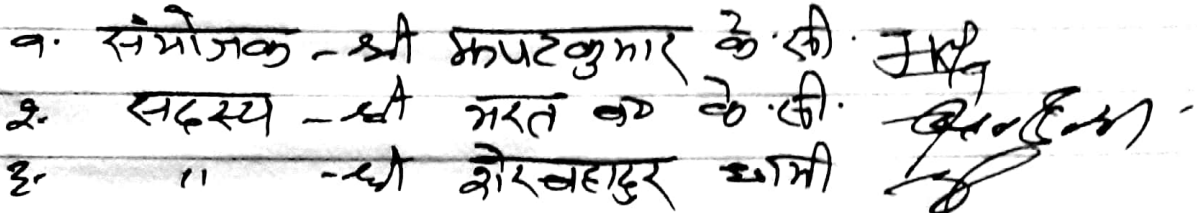 १. संयोजक - श्री झपटकुमार के.सी.
२. सदस्य - श्री भरत बः के.सी.
३. " - श्री शेरबहादुर धामी